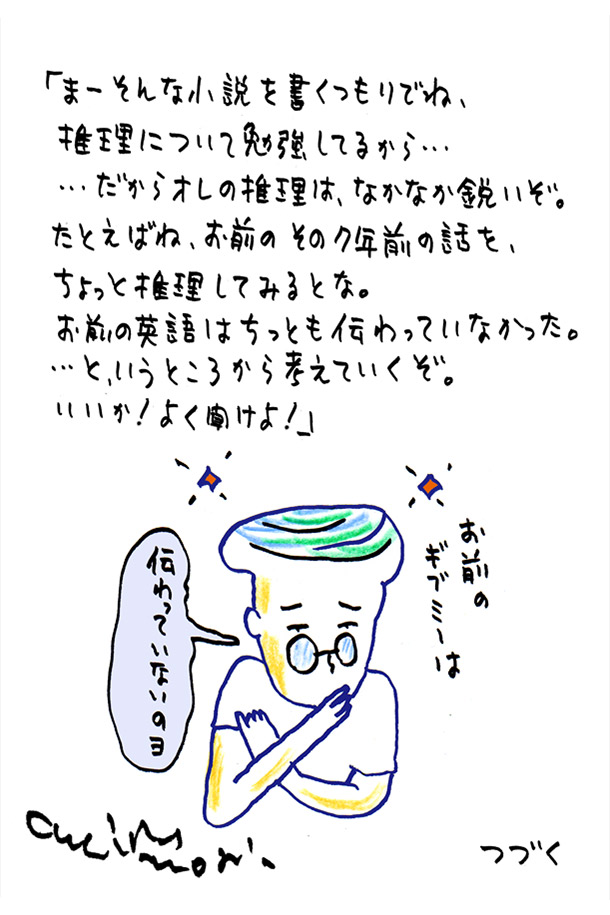 「まーそんな小説を書くつもりでね、
推理について勉強してるから…
…だからオレの推理は、なかなか鋭いぞ。
たとえばね、お前のその7年前の話を、
ちょっと推理してみるとな。
お前の英語はちっとも伝わっていなかった。
…と、いうところから考えていくぞ。
いいか！よく聞けよ！」
お前の
ギブミーは
伝わっていないのヨ
つづく